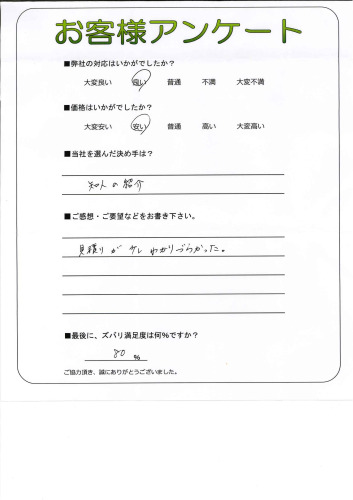 お客様アンケート
■弊社の対応はいかがでしたか?
大変良い 良い 普通 不満 大変不満
■価格はいかがでしたか?
大変安い 安い 普通 高い 大変高い
■当社を選んだ決め手は?
知人の紹介
■ご感想・ご要望などをお書き下さい。
見積りが少しわかりづらかった。
■最後に、ズバリ満足度は何%ですか?
80 %
ご協力頂き、誠にありがとうございました。